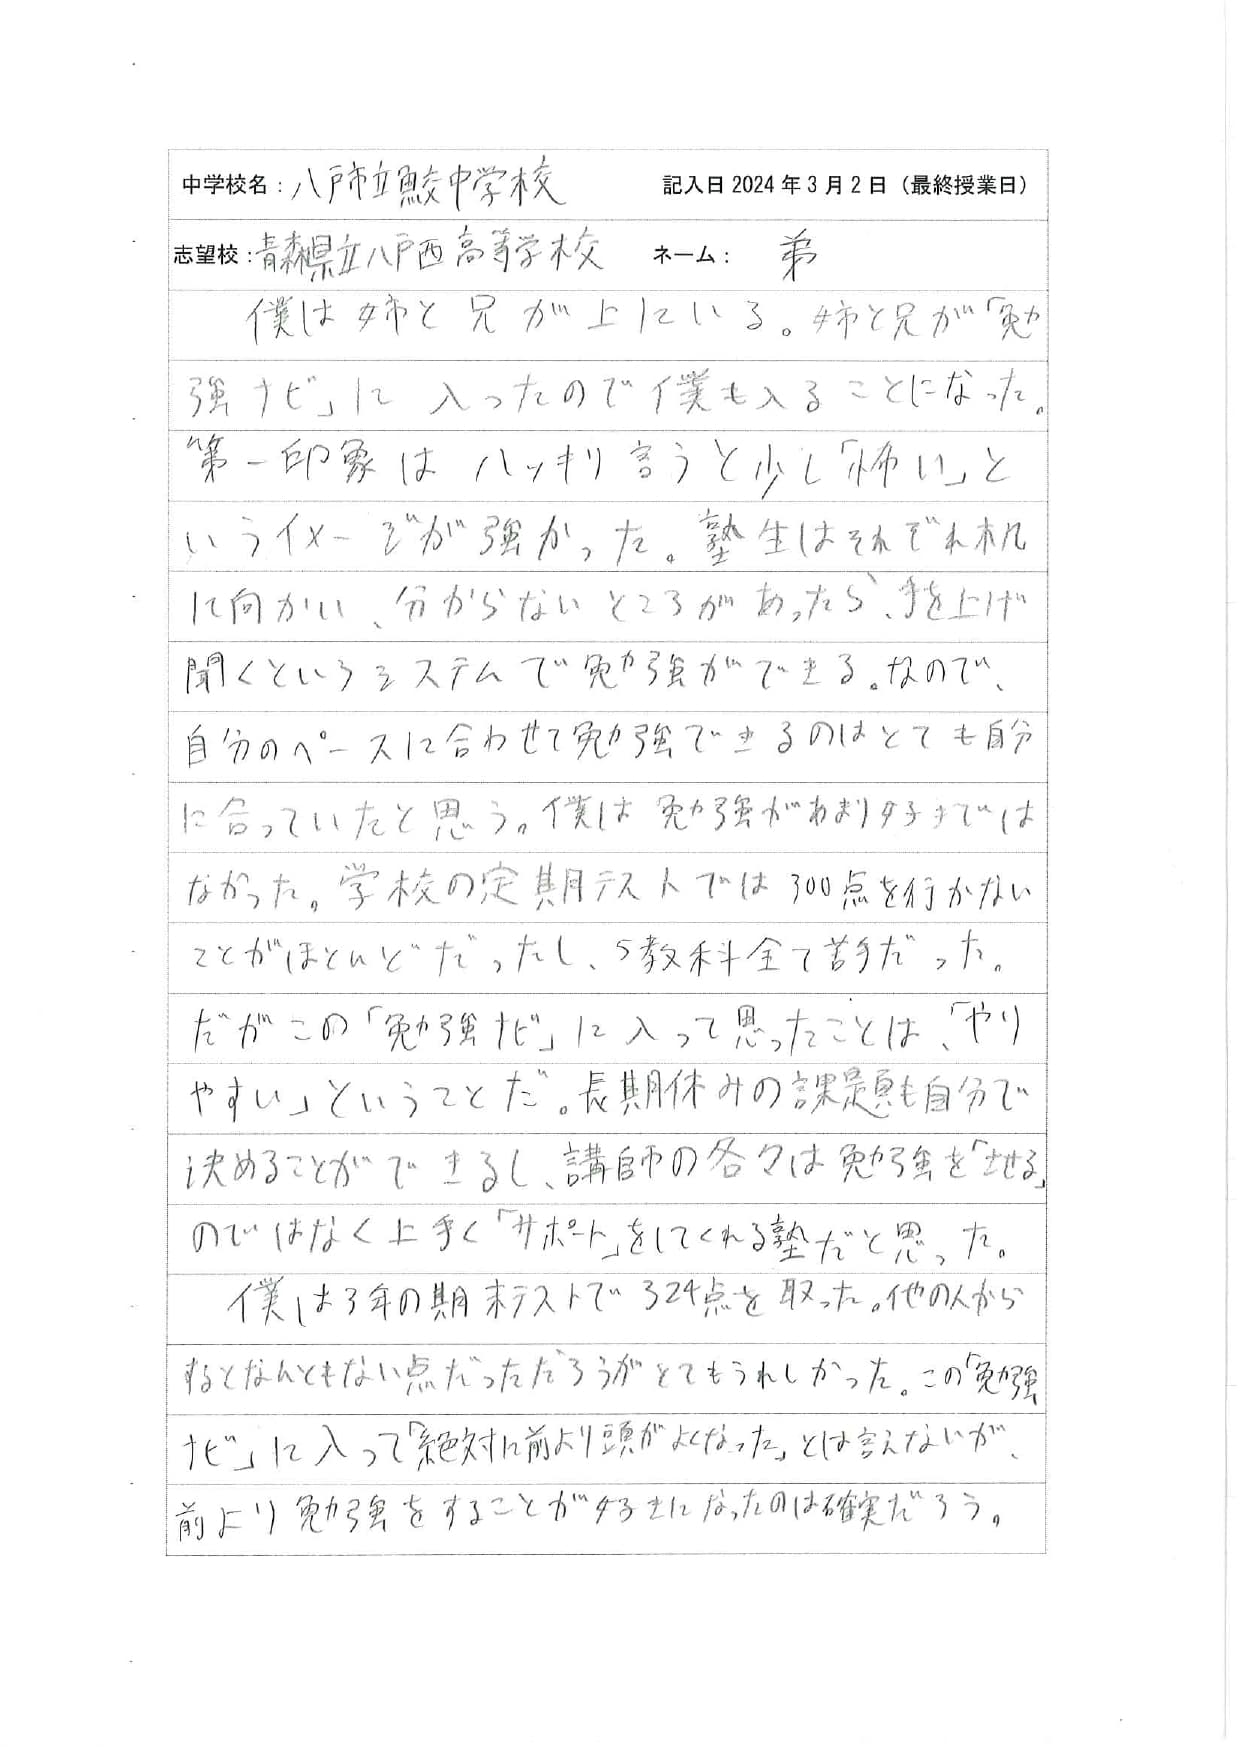 中学校名：八戸市立鮫中学校 記入日 2024 年 3 月 2 日（最終授業日）
志望校：青森県立八戸西高等学校 ネーム： 弟
僕は姉と兄が上にいる。姉と兄が「勉
強ナビ」に入ったので僕も入ることになった。
第一印象はハッキリ言うと少し「怖い」と
いうイメージが強かった。塾生はそれぞれ机
に向かい、分からないところがあったら、手を上げ
聞くというシステムで勉強ができる。なので、
自分のペースに合わせて勉強できるのはとても自分
に合っていたと思う。僕は勉強があまり好きでは
なかった。学校の定期テストでは300点を行かない
ことがほとんどだったし、5教科全て苦手だった。
だがこの「勉強ナビ」に入って思ったことは、「やり
やすい」ということだ。長期休みの課題も自分で
決めることができるし、講師の各々は勉強を「させる」
のではなく上手く「サポート」をしてくれる塾だと思った。
僕は3年の期末テストで324点を取った。他の人から
するとなんともない点だっただろうがとてもうれしかった。この「勉強
ナビ」に入って「絶対に前より頭がよくなった」とは言えないが、
前より勉強をすることが好きになったのは確実だろう。